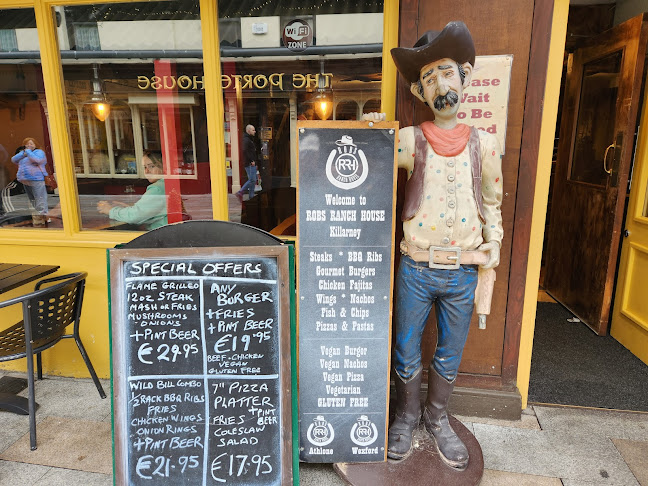 Wi Fi
ZONE
THE PORTERHOUSE
Please
Wait
to Be
SPECIAL OFFERS
FLAME GRILLED
12oz STEAK
MASH OR FRIES
MUSHROOMS
ONIONS
+PINT BEER
€24.95
ANY
BURGER
+FRIES
+PINT BEER
BEEF-CHICKEN
VEGAN
GLUTEN FREE
€19.95
WILD BILL COMBO
½RACK BBQ RIBS
FRIES
CHICKEN WINGS
ONION RINGS
+PINT BEER
€21.95
7" PIZZA
PLATTER
+PINT
FRIES BEER
COLESLAW
SALAD
€17.95
RRH
Welcome
to
ROBS RANCH HOUSE
Killarney
Steaks * BBQ Ribs
Gourmet Burgers
Chicken Fajitas
Wings * Nachos
Fish & Chips
Pizzas & Pastas
Vegan Burger
Vegan Nachos
Vegan Pizza
Vegetarian
GLUTEN FREE
RRH RRH
Athlone Wexford